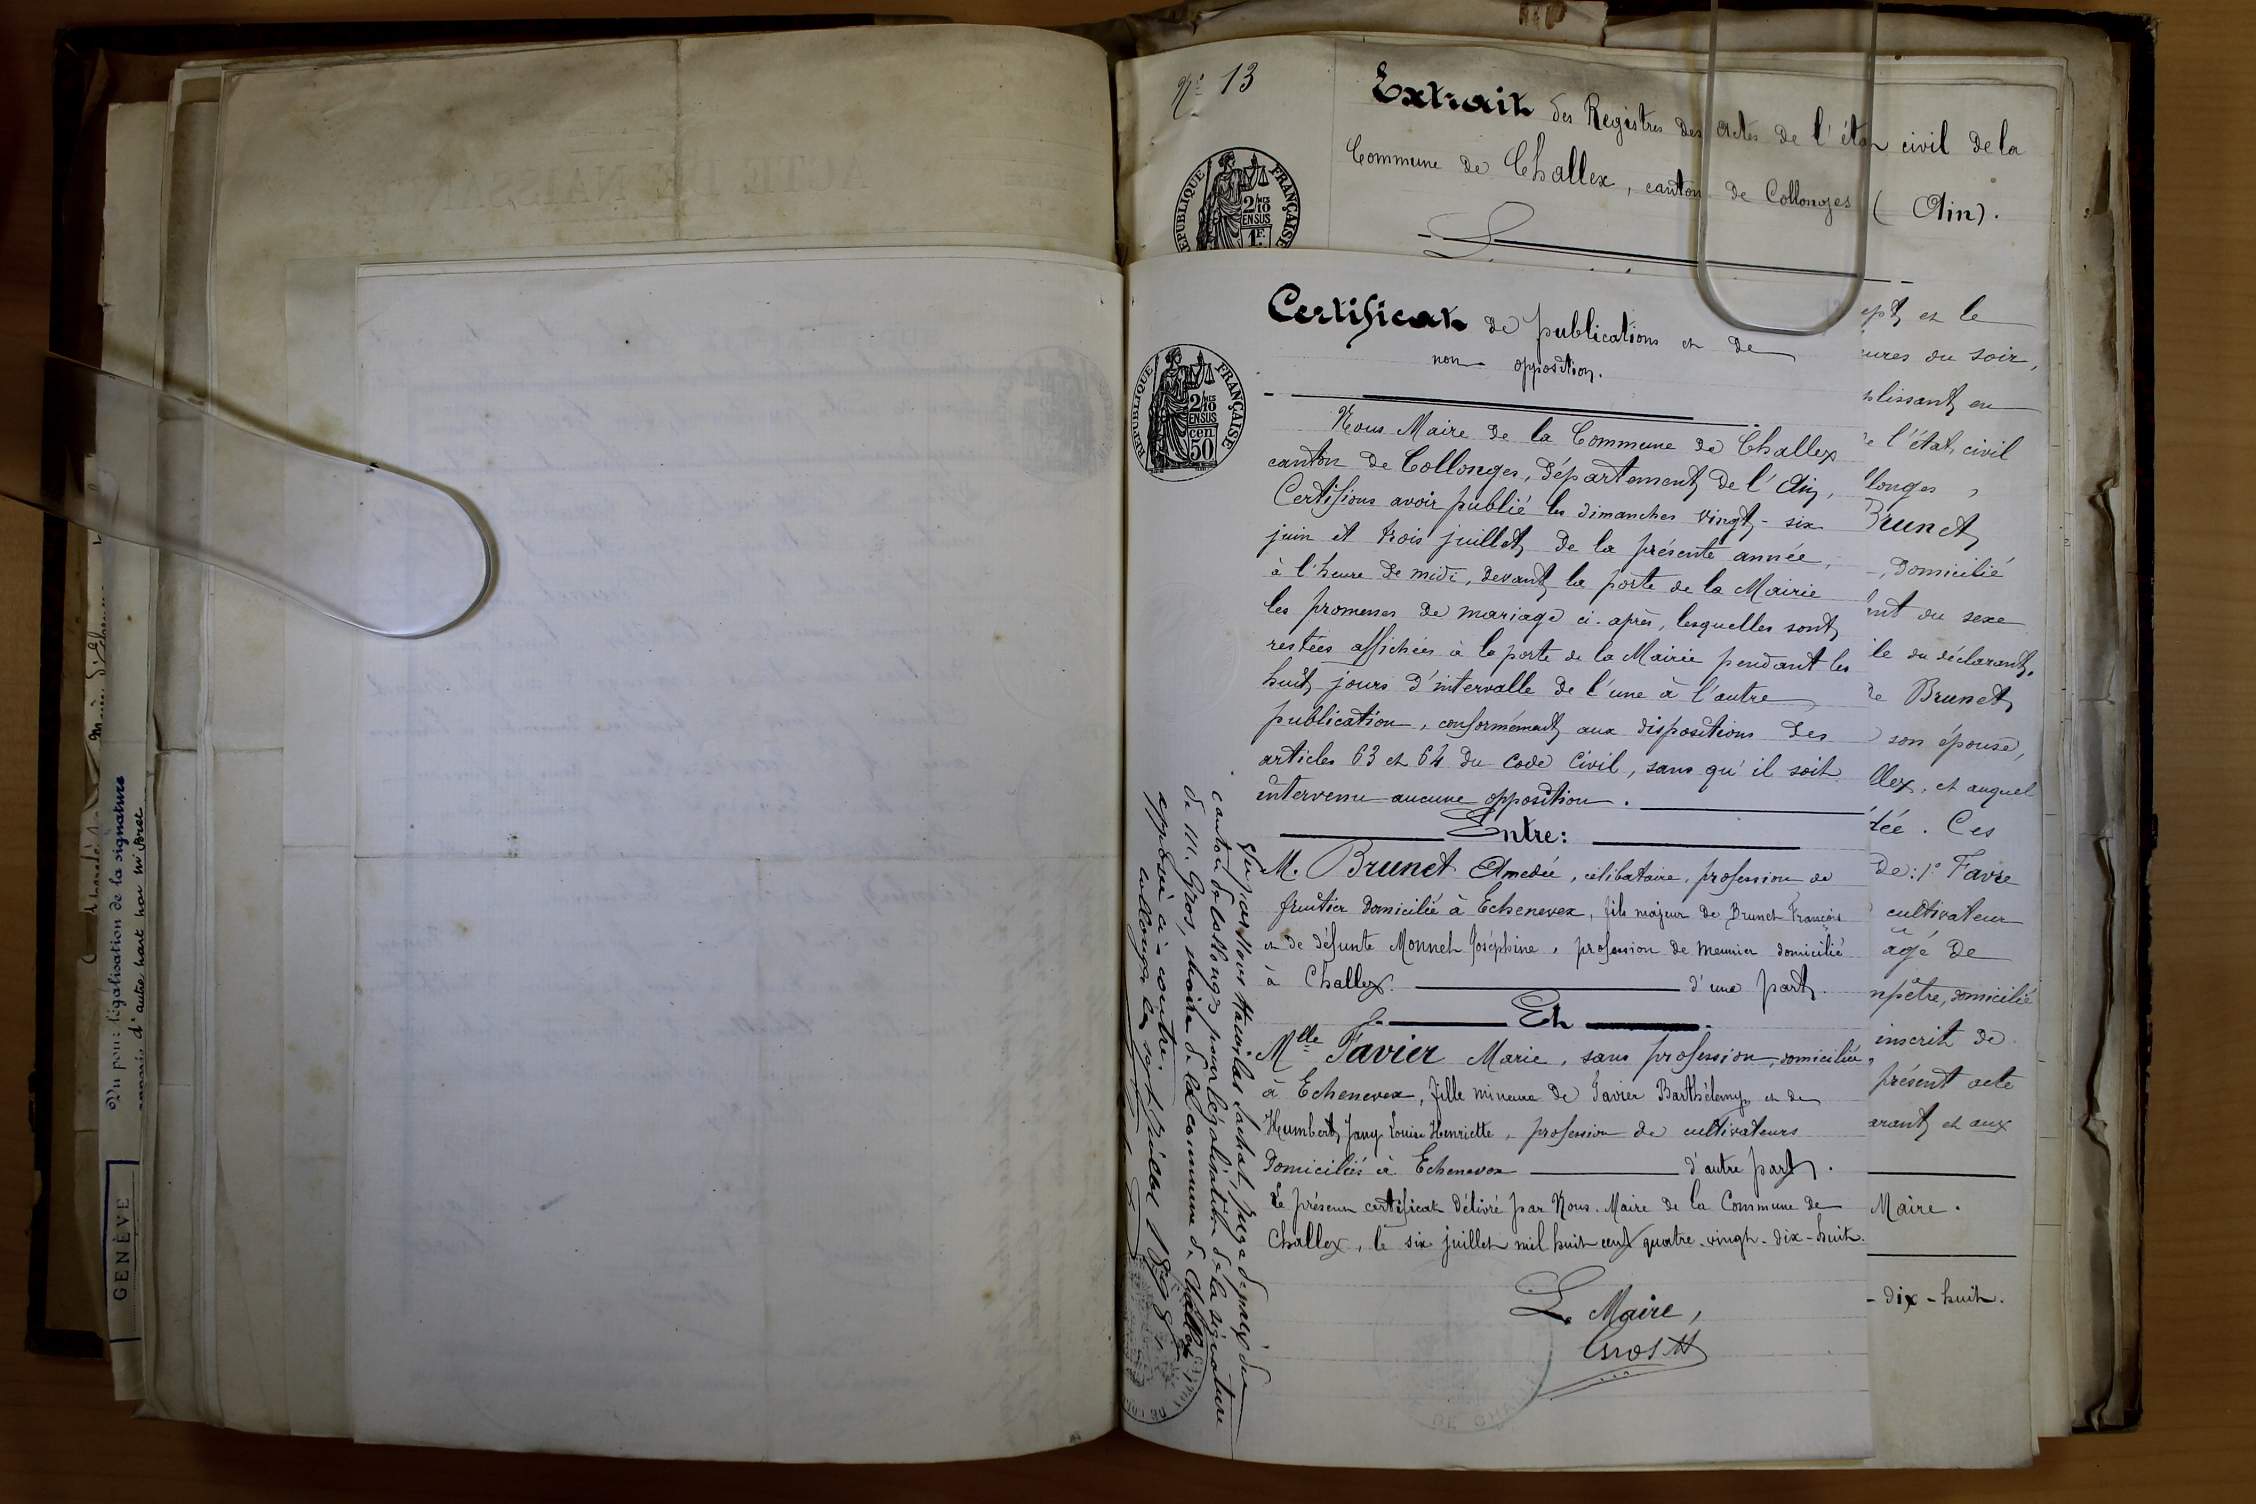 N° 13
Extrait des Registres des actes de l'état civil de la
Commune de Challex, canton de Collonges (Ain).
RÉPUBLIQUE FRANÇAISE
2/10 MES
EN SUS
1 F.
Certificat de publications et de
non opposition.
RÉPUBLIQUE FRANÇAISE
2/10 MES
EN SUS
cen
50
Nous Maire de la Commune de Challex
canton de Collonges, département de l'Ain,
Certifions avoir publié les dimanches vingt-six
juin et trois juillet de la présente année,
à l'heure de midi, devant la porte de la Mairie
les promesses de mariage ci-après, lesquelles sont
restées affichées à la porte de la Mairie pendant les
huit jours d'intervalle de l'une à l'autre
publication, conformément aux dispositions des
articles 63 et 64 du Code Civil, sans qu'il soit
intervenu aucune opposition.
Entre:
M. Brunet Amedée, célibataire, profession de
fruitier domicilié à Echenevex, fils majeur de Brunet François
et de défunte Monnet Joséphine, profession de meunier domicilié
à Challex. d'une part.
Et
Mlle Tavier Marie, sans profession, domiciliée
à Echenevex, fille mineure de Tavier Barthélemy et de
Humbert Jany Louise Henriette, profession de cultivateurs
domiciliés à Echenevex d'autre part.
Le présent certificat délivré par Nous Maire de la Commune de
Challex, le six juillet mil huit cent quatre-vingt-dix-huit.
Le Maire,
Gros
ept et le
ures du soir,
plissant en
de l'état civil
llonges,
Brunet
, domicilié
ant du sexe
ile du déclarant,
de Brunet
son épouse,
llex, et auquel
tée. Ces
de: 1° Favre
cultivateur
âgé de
mpêtre, domicilié
inscrit de
présent acte
arant et aux
Maire.
-dix-huit.
Vu par Nous Lachat, juge de paix du
canton de Collonges pour légalisation de la signature
de M. Gros, maire de la commune de Challex
apposée ci-contre.
Collonges le sept juillet 1898
Vu pour légalisation de la signature
d'autre part
GENÈVE